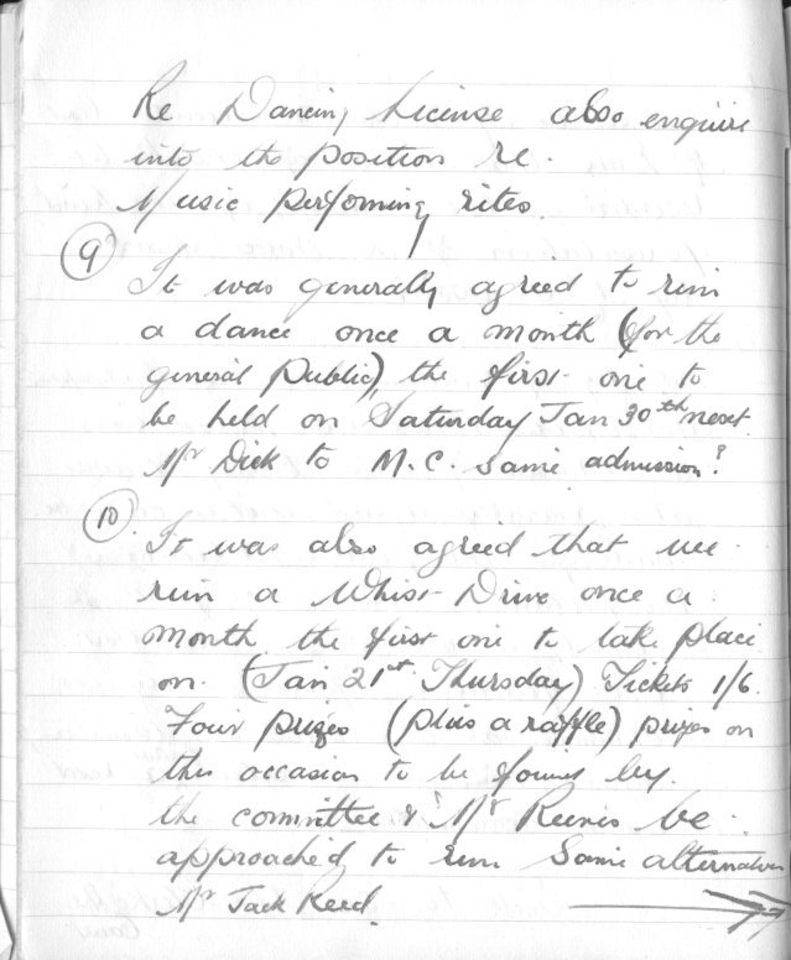 Re Dancing License also enquire
into the position re.
Music performing rites.
9
It was generally agreed to run
a dance once a month (for the
general Public), the first one to
be held on Saturday Jan 30th next.
Mr Dick to M.C. same admission?
10
It was also agreed that we
run a Whist Drive once a
month the first one to take place
on (Jan 21st Thursday) Tickets 1/6.
Four prizes (plus a raffle) prizes on
this occasion to be found by
the committee & Mr be
approached to run same alternative
Mr Jack Reed.